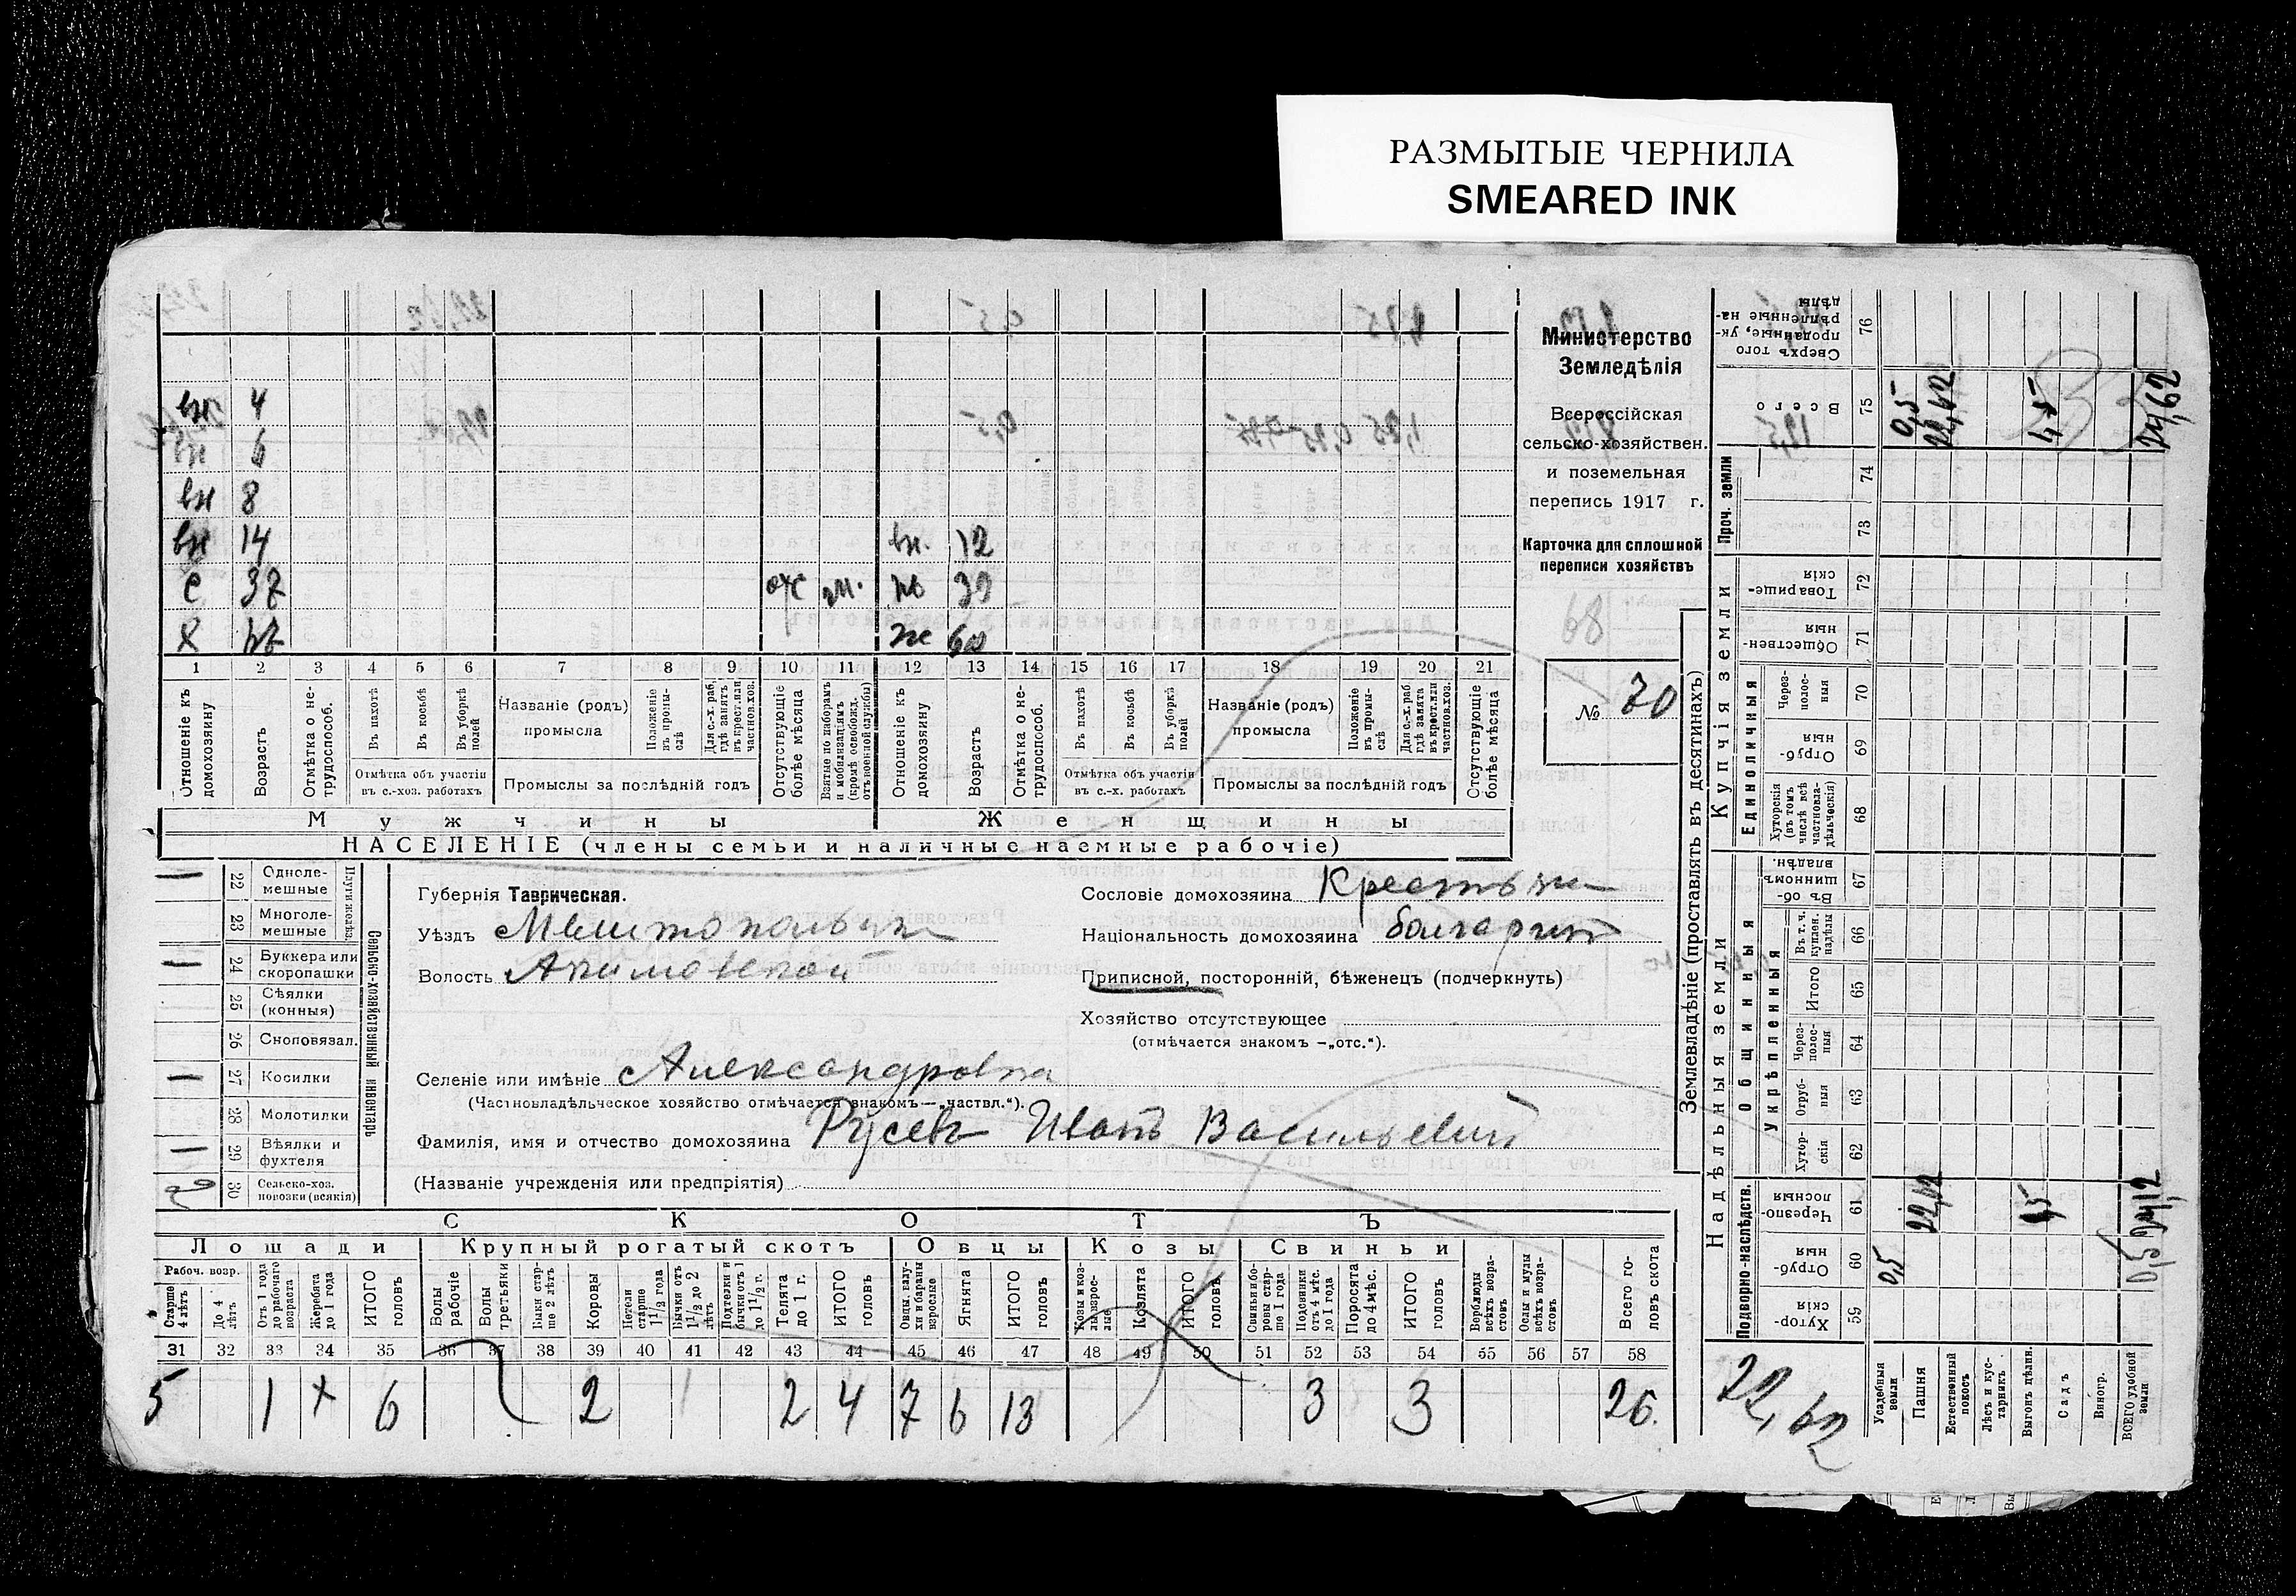 РАЗМЫТЫЕ ЧЕРНИЛА
SMEARED INK
вн 4
вн 6
вн 8
вн 14 вн. 12
с 37 отс
Х ж 60
1 2 3 4 5 6 7 8 9 10 11 12 13 14 15 16 17 18 19 20 21
Отношеніе къ домохозяину
Возрастъ
Отмѣтка о не-трудоспособ.
Въ пахотѣ
Въ косьбѣ
Въ уборкѣ полей
Отмѣтка объ участіи въ с.-хоз. работахъ
Названіе (родъ) промысла
Положеніе въ промы-слѣ
Для с.-х. раб. гдѣ занятъ въ крест. или частнов. хоз.
Промыслы за послѣдній годъ
Отсутствующіе болѣе мѣсяца
Взятые по наборамъ и мобилизаціямъ (кромѣ освобожд. отъ военной службы)
Отношеніе къ домохозяину
Возрастъ
Отмѣтка о не-трудоспособ.
Въ пахотѣ
Въ косьбѣ
Въ уборкѣ полей
Отмѣтка объ участіи въ с.-х. работахъ
Названіе (родъ) промысла
Положеніе въ промы-слѣ
Для с.-х. раб гдѣ занята въ крест. или частнов. хоз.
Промыслы за послѣдній годъ
Отсутствующіе болѣе мѣсяца
Мужчины Женщины
НАСЕЛЕНІЕ (члены семьи и наличные наемные рабочіе)
Министерство
Земледѣлія
Всероссійская
сельско-хозяйствен.
и поземельная
перепись 1917 г.
Карточка для сплошной
переписи хозяйствъ
68
№ 70
22 Однолемешные
23 Многолемешные
Плуги желѣз.
24 Буккера или скоропашки
25 Сѣялки (конныя)
26 Сноповязал.
27 Косилки
28 Молотилки
29 Вѣялки и фухтеля
30 Сельско-хоз. повозки (всякія)
Сельско-хозяйственный инвентарь
Губернія Таврическая.
Уѣздъ Мелитопольск
Волость Акимовской
Селеніе или имѣніе Александровка
(Частновладѣльческое хозяйство отмѣчается знакомъ—„частвл.“).
Фамилія, имя и отчество домохозяина Русевъ Иванъ Васильевий
(Названіе учрежденія или предпріятія)
Сословіе домохозяина Крестьян
Національность домохозяина болгарин
Приписной, посторонній, бѣженецъ (подчеркнуть)
Хозяйство отсутствующее
(отмѣчается знакомъ —„отс.“).
СКОТЪ
Лошади Крупный рогатый скотъ Овцы Козы Свиньи
Рабоч. возр.
Старше 4 лѣтъ
До 4 лѣтъ
Отъ 1 года до рабочаго возраста
Жеребята до 1 года
ИТОГО головъ
Волы рабочіе
Волы третьяки
Быки старше 2 лѣтъ
Коровы
Нетели старше 1 1/2 года
Бычки отъ 1 1/2 до 2 лѣтъ
Подтелки и бычки отъ 1 до 1 1/2 г.
Телята до 1 г.
ИТОГО головъ
Овцы, валухи и бараны взрослые
Ягнята
ИТОГО головъ
Козы и козлы взрослые
Козлята
ИТОГО головъ
Свиньи и боровы старше 1 года
Подсвинки отъ 4 мѣс. до 1 года
Поросята до 4 мѣс.
ИТОГО головъ
Верблюды всѣхъ возрастовъ
Ослы и мулы всѣхъ возрастовъ
Всего головъ скота
31 32 33 34 35 36 37 38 39 40 41 42 43 44 45 46 47 48 49 50 51 52 53 54 55 56 57 58
5 1 + 6 2 2 4 7 6 13 3 3 26.
Землевладѣніе (проставлять въ десятинахъ)
Купчія земли
Надѣльныя земли
Проч. земли
Единоличныя
Общинныя
Укрѣпленныя
Подворно-наслѣдств.
Сверхъ того проданные, укрѣпленные надѣлы 76
Всего 75 0,5 22,62 24,62
74
73
Товарищескія 72
Общественныя 71
Черезполосныя 70
Отрубныя 69
Хуторскія (въ томъ числѣ всѣ частновладѣльческія) 68
Въ общинномъ владѣн. 67
Въ т. ч. куплен. надѣлы 66
Итого 65
Черезполосныя 64
Отрубныя 63
Хуторскія 62
Черезполосныя 61 24,12
Отрубныя 60 0,5 0,5
Хуторскія 59
22,62
Усадебныя земли
Пашня
Естественный покосъ
Лѣсъ и кустарникъ
Выгонъ дѣлин.
Садъ
Виногр.
ВСЕГО удобной земли